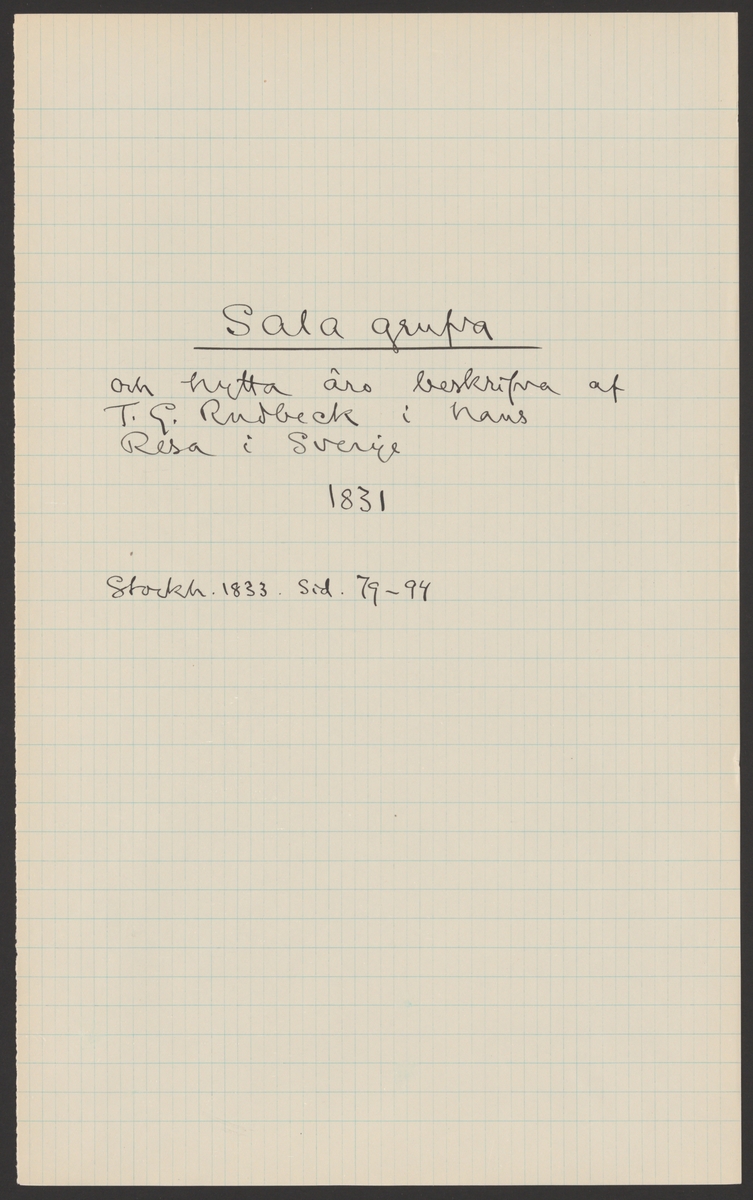 Sala grufva
och hytta äro beskrifva af
T. G. Rudbeck i hans
Resa i Sverije
1831
Stockh. 1833. Sid. 79-94